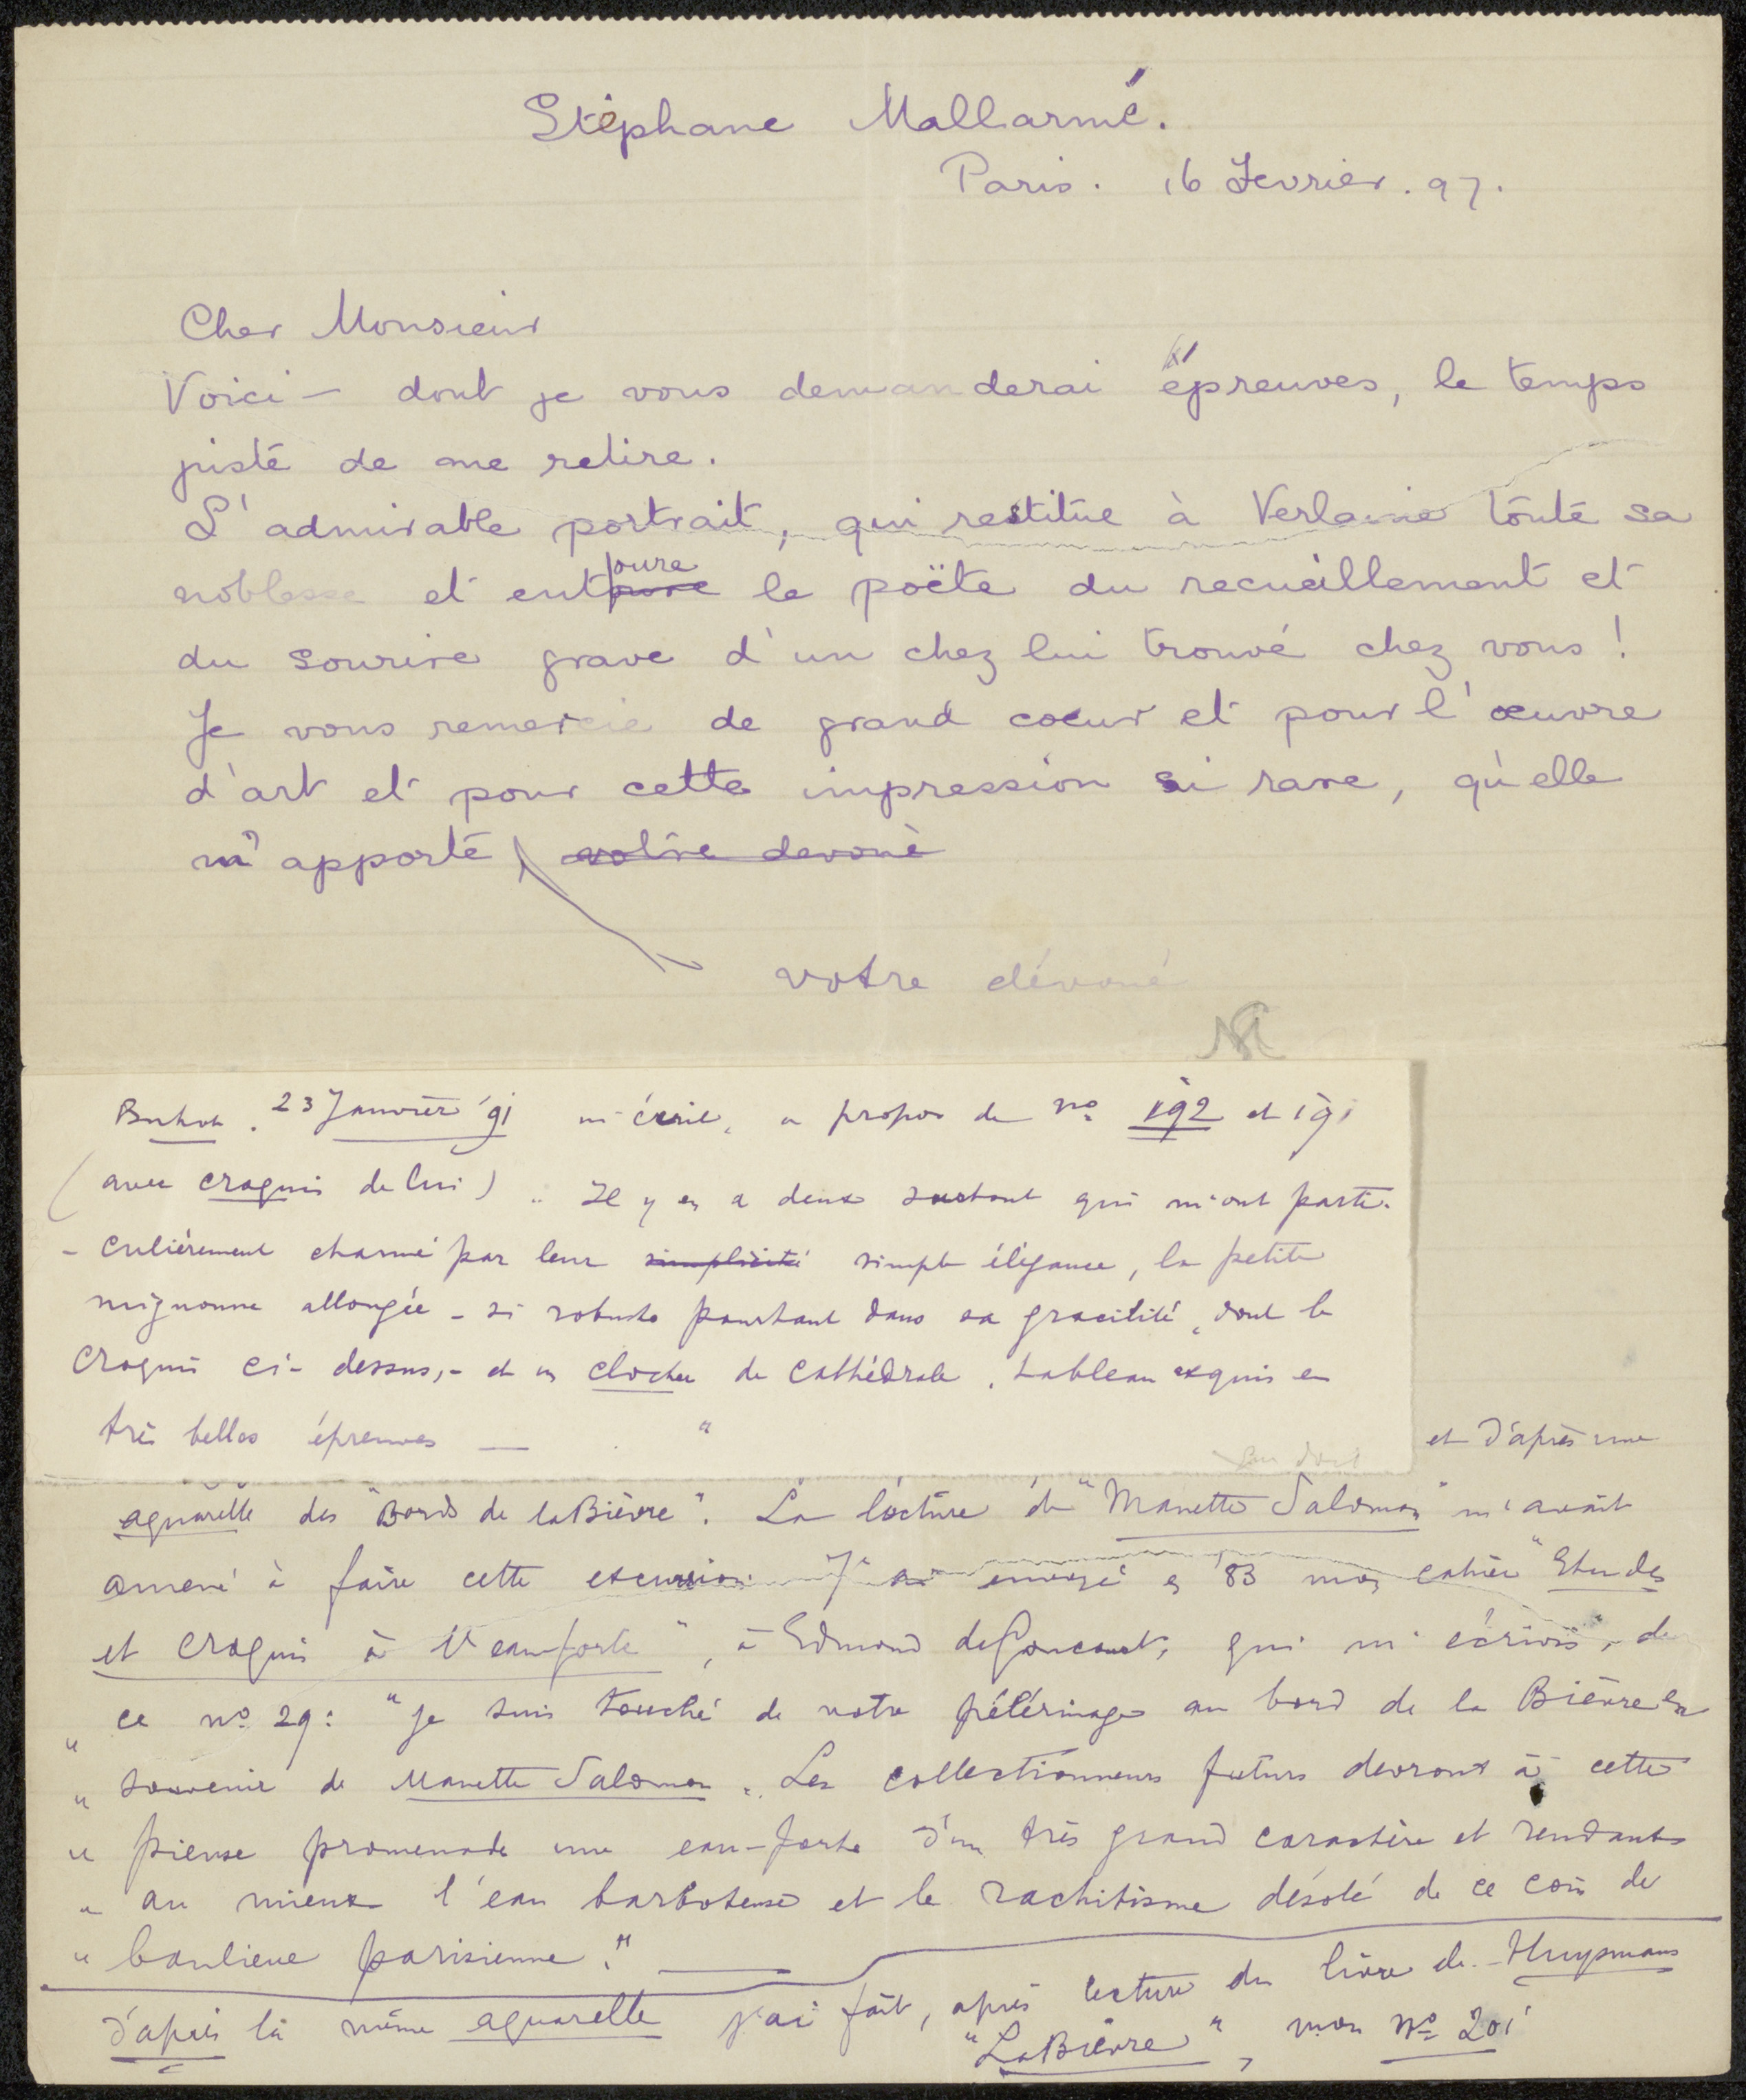 Stéphane Mallarmé.
Paris. 16 Fevrier. 97.
Cher Monsieur
Voici — dont je vous demanderai épreuves, le temps
juste de me relire.
L'admirable portrait, qui restitue à Verlaine toute sa
noblesse et entoure le poëte du recueillement et
du sourire grave d'un chez lui trouvé chez vous!
Je vous remercie de grand coeur et pour l'œuvre
d'art et pour cette impression si rare, qu'elle
m'apporte, votre devoué
votre dévoué
Buhot. 23 Janvier '91 m'écrit, a propos de No 192 et 191
(avec croquis de lui) " Il y en a deux surtout qui m'ont parti-
-culièrement charmé par leur simplicité simple élégance, la petite
mignonne allongée - si robuste pourtant dans sa gracilité, dont le
croquis ci-dessus, - et un clocher de cathédrale, tableau exquis en
très belles épreuves — "
et d'après une
aquarelle des "Bords de la Bièvre". La lecture de "Manette Salomon" m'avait
amené à faire cette excursion. J'ai envoyé en '83 mon cahier "Etudes
et croquis à l'eau-forte", à Edmond de Goncourt, qui m'écrivit, de
ce no 29: "je suis touché de votre pélérinage au bord de la Bièvre en
" souvenir de Manette Salomon". Les collectionneurs futurs devront à cette
" pieuse promenade une eau-forte d'un très grand caractère et rendant
" au mieux l'eau barboteuse et le rachitisme désolé de ce coin de
" banlieue parisienne." —
d'après la même aquarelle j'ai fait, après lecture du livre de Huysmans
"La Bièvre", mon No 201